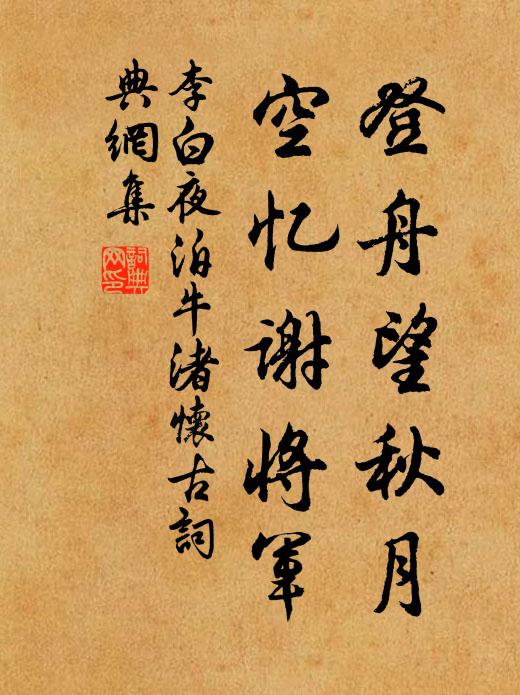 登舟望秋月
空忆谢将军
李白夜泊牛渚懷古詞
典網集
詞典网印